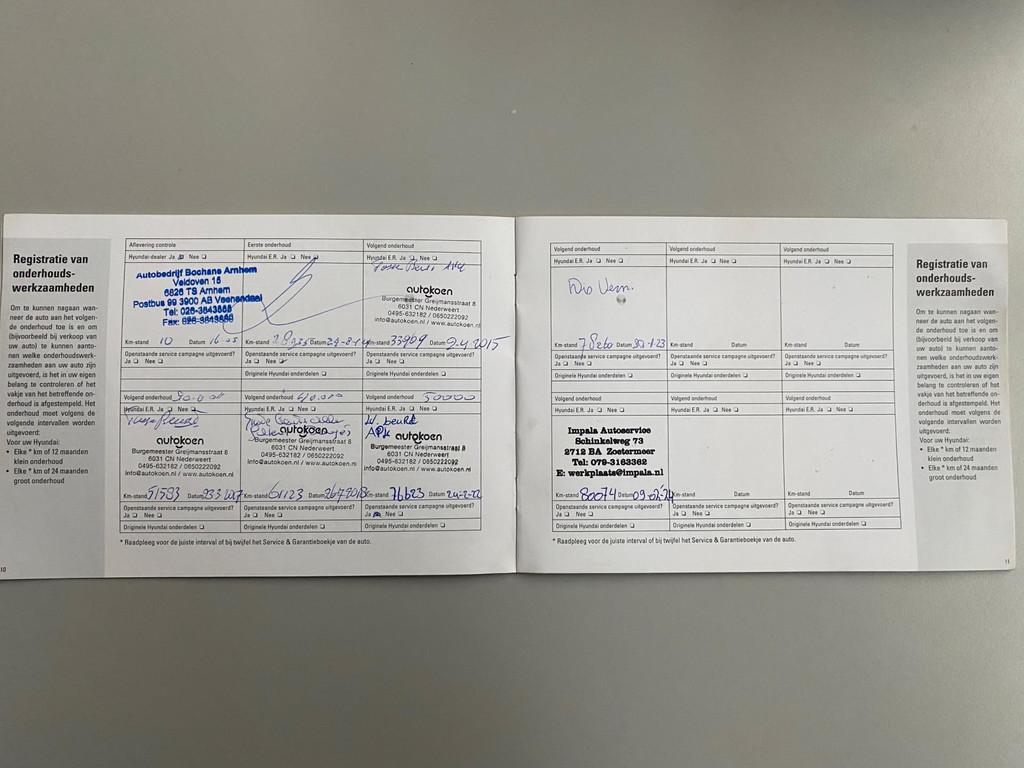 Registratie van
onderhouds-
werkzaamheden
Om te kunnen nagaan wan-
neer de auto aan het volgen-
de onderhoud toe is en om
(bijvoorbeeld bij verkoop van
uw auto) te kunnen aanto-
nen welke onderhoudswerk-
zaamheden aan uw auto zijn
uitgevoerd, is het in uw eigen
belang te controleren of het
vakje van het betreffende on-
derhoud is afgestempeld. Het
onderhoud moet volgens de
volgende intervallen worden
uitgevoerd:
Voor uw Hyundai:
• Elke * km of 12 maanden
klein onderhoud
• Elke * km of 24 maanden
groot onderhoud
10
Aflevering controle
Hyundai-dealer Ja Nee
Autobedrijf Bochane Arnhem
Veldoven 15
6826 TS Arnhem
Postbus 99 3900 AB Veenendaal
Tel: 026-3643668
Fax:
Km-stand 10 Datum
Openstaande service campagne uitgevoerd?
Ja Nee
Eerste onderhoud
Hyundai E.R. Ja Nee
Km-stand Datum
Openstaande service campagne uitgevoerd?
Ja Nee
Originele Hyundai onderdelen
Volgend onderhoud
Hyundai E.R. Ja Nee
autokoen
Burgemeester Greijmansstraat 8
6031 CN Nederweert
0495-632182 / 0650222092
info@autokoen.nl / www.autokoen.nl
Km-stand 33909 Datum 2-4-2015
Openstaande service campagne uitgevoerd?
Ja Nee
Originele Hyundai onderdelen
Volgend onderhoud
Hyundai E.R. Ja Nee
autokoen
Burgemeester Greijmansstraat 8
6031 CN Nederweert
0495-632182 / 0650222092
info@autokoen.nl / www.autokoen.nl
Km-stand 51593 Datum
Openstaande service campagne uitgevoerd?
Ja Nee
Originele Hyundai onderdelen
Volgend onderhoud 40.000
Hyundai E.R. Ja Nee
autokoen
Burgemeester Greijmansstraat 8
6031 CN Nederweert
0495-632182 / 0650222092
info@autokoen.nl / www.autokoen.nl
Km-stand 61123 Datum
Openstaande service campagne uitgevoerd?
Ja Nee
Originele Hyundai onderdelen
Volgend onderhoud 50000
Hyundai E.R. Ja Nee
APK
autokoen
Burgemeester Greijmansstraat 8
6031 CN Nederweert
0495-632182 / 0650222092
info@autokoen.nl / www.autokoen.nl
Km-stand 76623 Datum 24-2-22
Openstaande service campagne uitgevoerd?
Ja Nee
Originele Hyundai onderdelen
* Raadpleeg voor de juiste interval of bij twijfel het Service & Garantieboekje van de auto.
Volgend onderhoud
Hyundai E.R. Ja Nee
Km-stand 78260 Datum 30-1-23
Openstaande service campagne uitgevoerd?
Ja Nee
Originele Hyundai onderdelen
Volgend onderhoud
Hyundai E.R. Ja Nee
Km-stand Datum
Openstaande service campagne uitgevoerd?
Ja Nee
Originele Hyundai onderdelen
Volgend onderhoud
Hyundai E.R. Ja Nee
Km-stand Datum
Openstaande service campagne uitgevoerd?
Ja Nee
Originele Hyundai onderdelen
Volgend onderhoud
Hyundai E.R. Ja Nee
Impala Autoservice
Schinkelweg 73
2712 BA Zoetermeer
Tel: 079-3163362
E: werkplaats@impala.nl
Km-stand 80074 Datum 09-02-'24
Openstaande service campagne uitgevoerd?
Ja Nee
Originele Hyundai onderdelen
Volgend onderhoud
Hyundai E.R. Ja Nee
Km-stand Datum
Openstaande service campagne uitgevoerd?
Ja Nee
Originele Hyundai onderdelen
Volgend onderhoud
Hyundai E.R. Ja Nee
Km-stand Datum
Openstaande service campagne uitgevoerd?
Ja Nee
Originele Hyundai onderdelen
* Raadpleeg voor de juiste interval of bij twijfel het Service & Garantieboekje van de auto.
Registratie van
onderhouds-
werkzaamheden
Om te kunnen nagaan wan-
neer de auto aan het volgen-
de onderhoud toe is en om
(bijvoorbeeld bij verkoop van
uw auto) te kunnen aanto-
nen welke onderhoudswerk-
zaamheden aan uw auto zijn
uitgevoerd, is het in uw eigen
belang te controleren of het
vakje van het betreffende on-
derhoud is afgestempeld. Het
onderhoud moet volgens de
volgende intervallen worden
uitgevoerd:
Voor uw Hyundai:
• Elke * km of 12 maanden
klein onderhoud
• Elke * km of 24 maanden
groot onderhoud
11